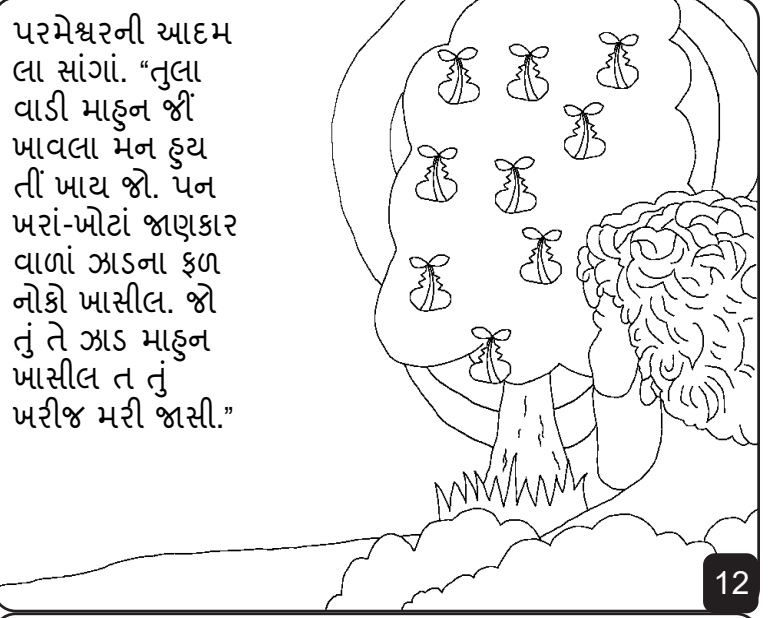 પરમેશ્વરની આદમ
લા સાંગાં. “તુલા
વાડી માહુન જીં
ખાવલા મન હુય
તીં ખાય જો. પન
ખરાં-ખોટાં જાણકાર
વાળાં ઝાડના ફળ
નોકો ખાસીલ. જો
તું તે ઝાડ માહુન
ખાસીલ ત તું
ખરીજ મરી જાસી.”
12